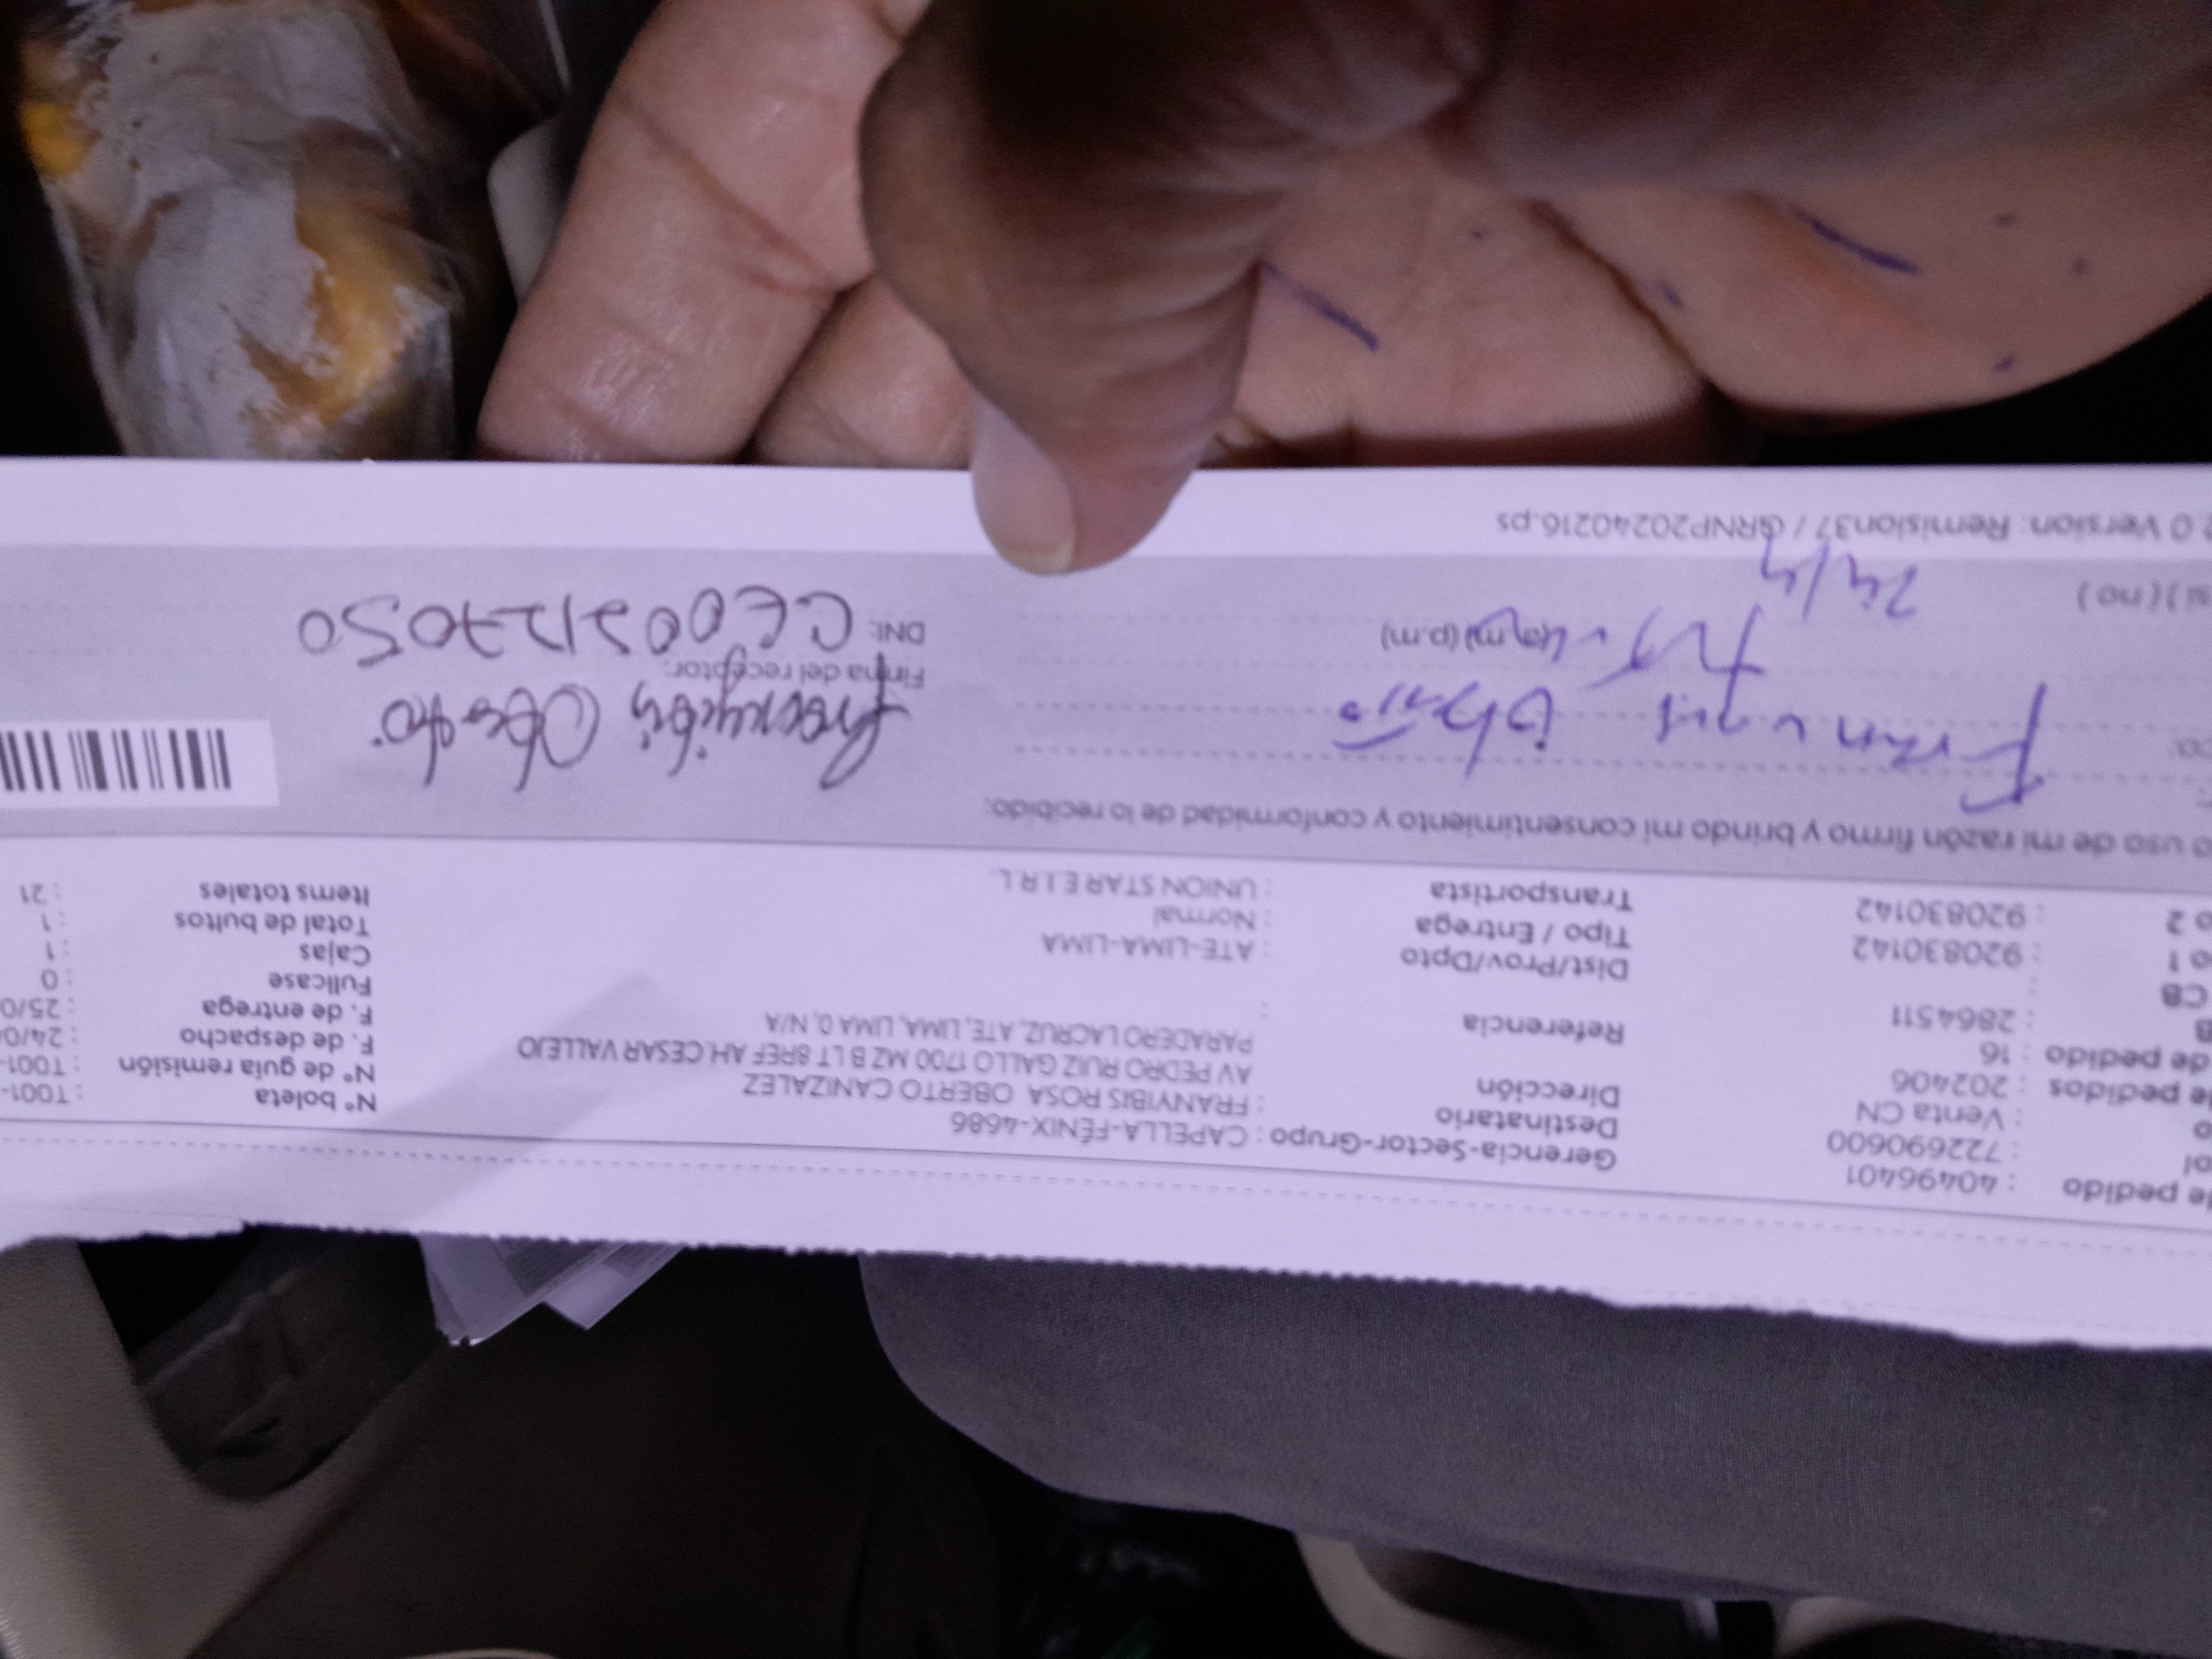 de pedido : 40496401
ol : 722690600
o : Venta CN
de pedidos : 202406
de pedido : 16
B : 2864511
CB :
o 1 : 920830142
o 2 : 920830142
Gerencia-Sector-Grupo : CAPELLA-FÉNIX-4686
Destinatario : FRANYIBIS ROSA OBERTO CANIZALEZ
Dirección
AV PEDRO RUIZ GALLO 1700 MZ B LT 8REF AH. CESAR VALLEJO
PARADERO LACRUZ, ATE, LIMA, LIMA 0, N/A
Referencia :
Dist/Prov/Dpto : ATE-LIMA-LIMA
Tipo / Entrega : Normal
Transportista : UNION STAR E I R L
Nº boleta : T001-
Nº de guía remisión : T001-
F. de despacho : 24/0
F. de entrega : 25/0
Fullcase : 0
Cajas : 1
Total de bultos : 1
Items totales : 21
o uso de mi razón firmo y brindo mi consentimiento y conformidad de lo recibido:
Franyibis Oberto
Firma del receptor:
DNI: CE002127050
(a.m) (p.m)
si ) ( no )
24/4
.0 Version: Remision37 / GRNP20240216.ps